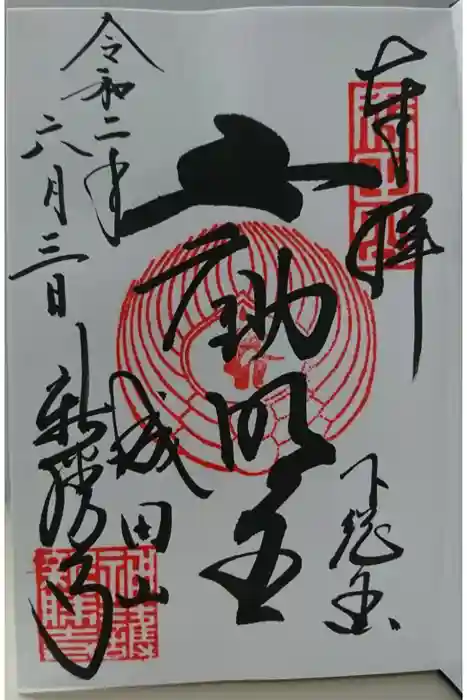 奉拝
下総国
不動明王
成田山
新勝寺
令和二年
六月三日